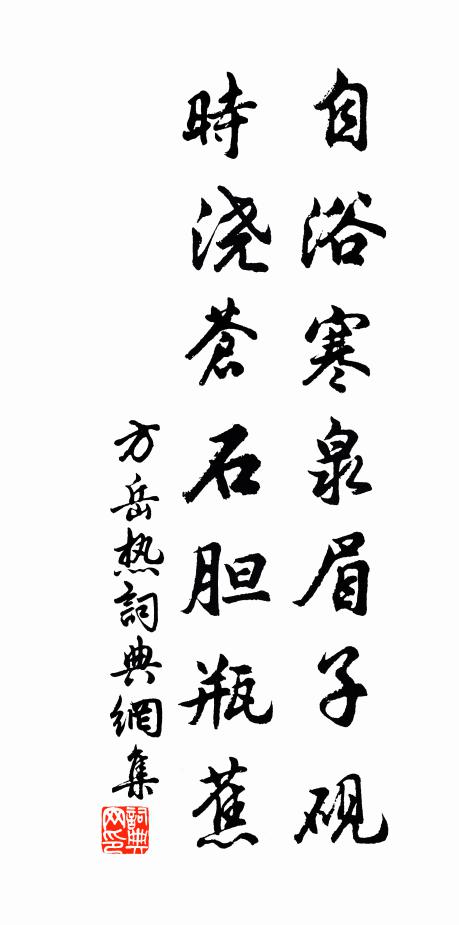 自浴寒泉眉子砚
時浇蒼石胆瓶蕉
方岳热詞典網集
詞典网印